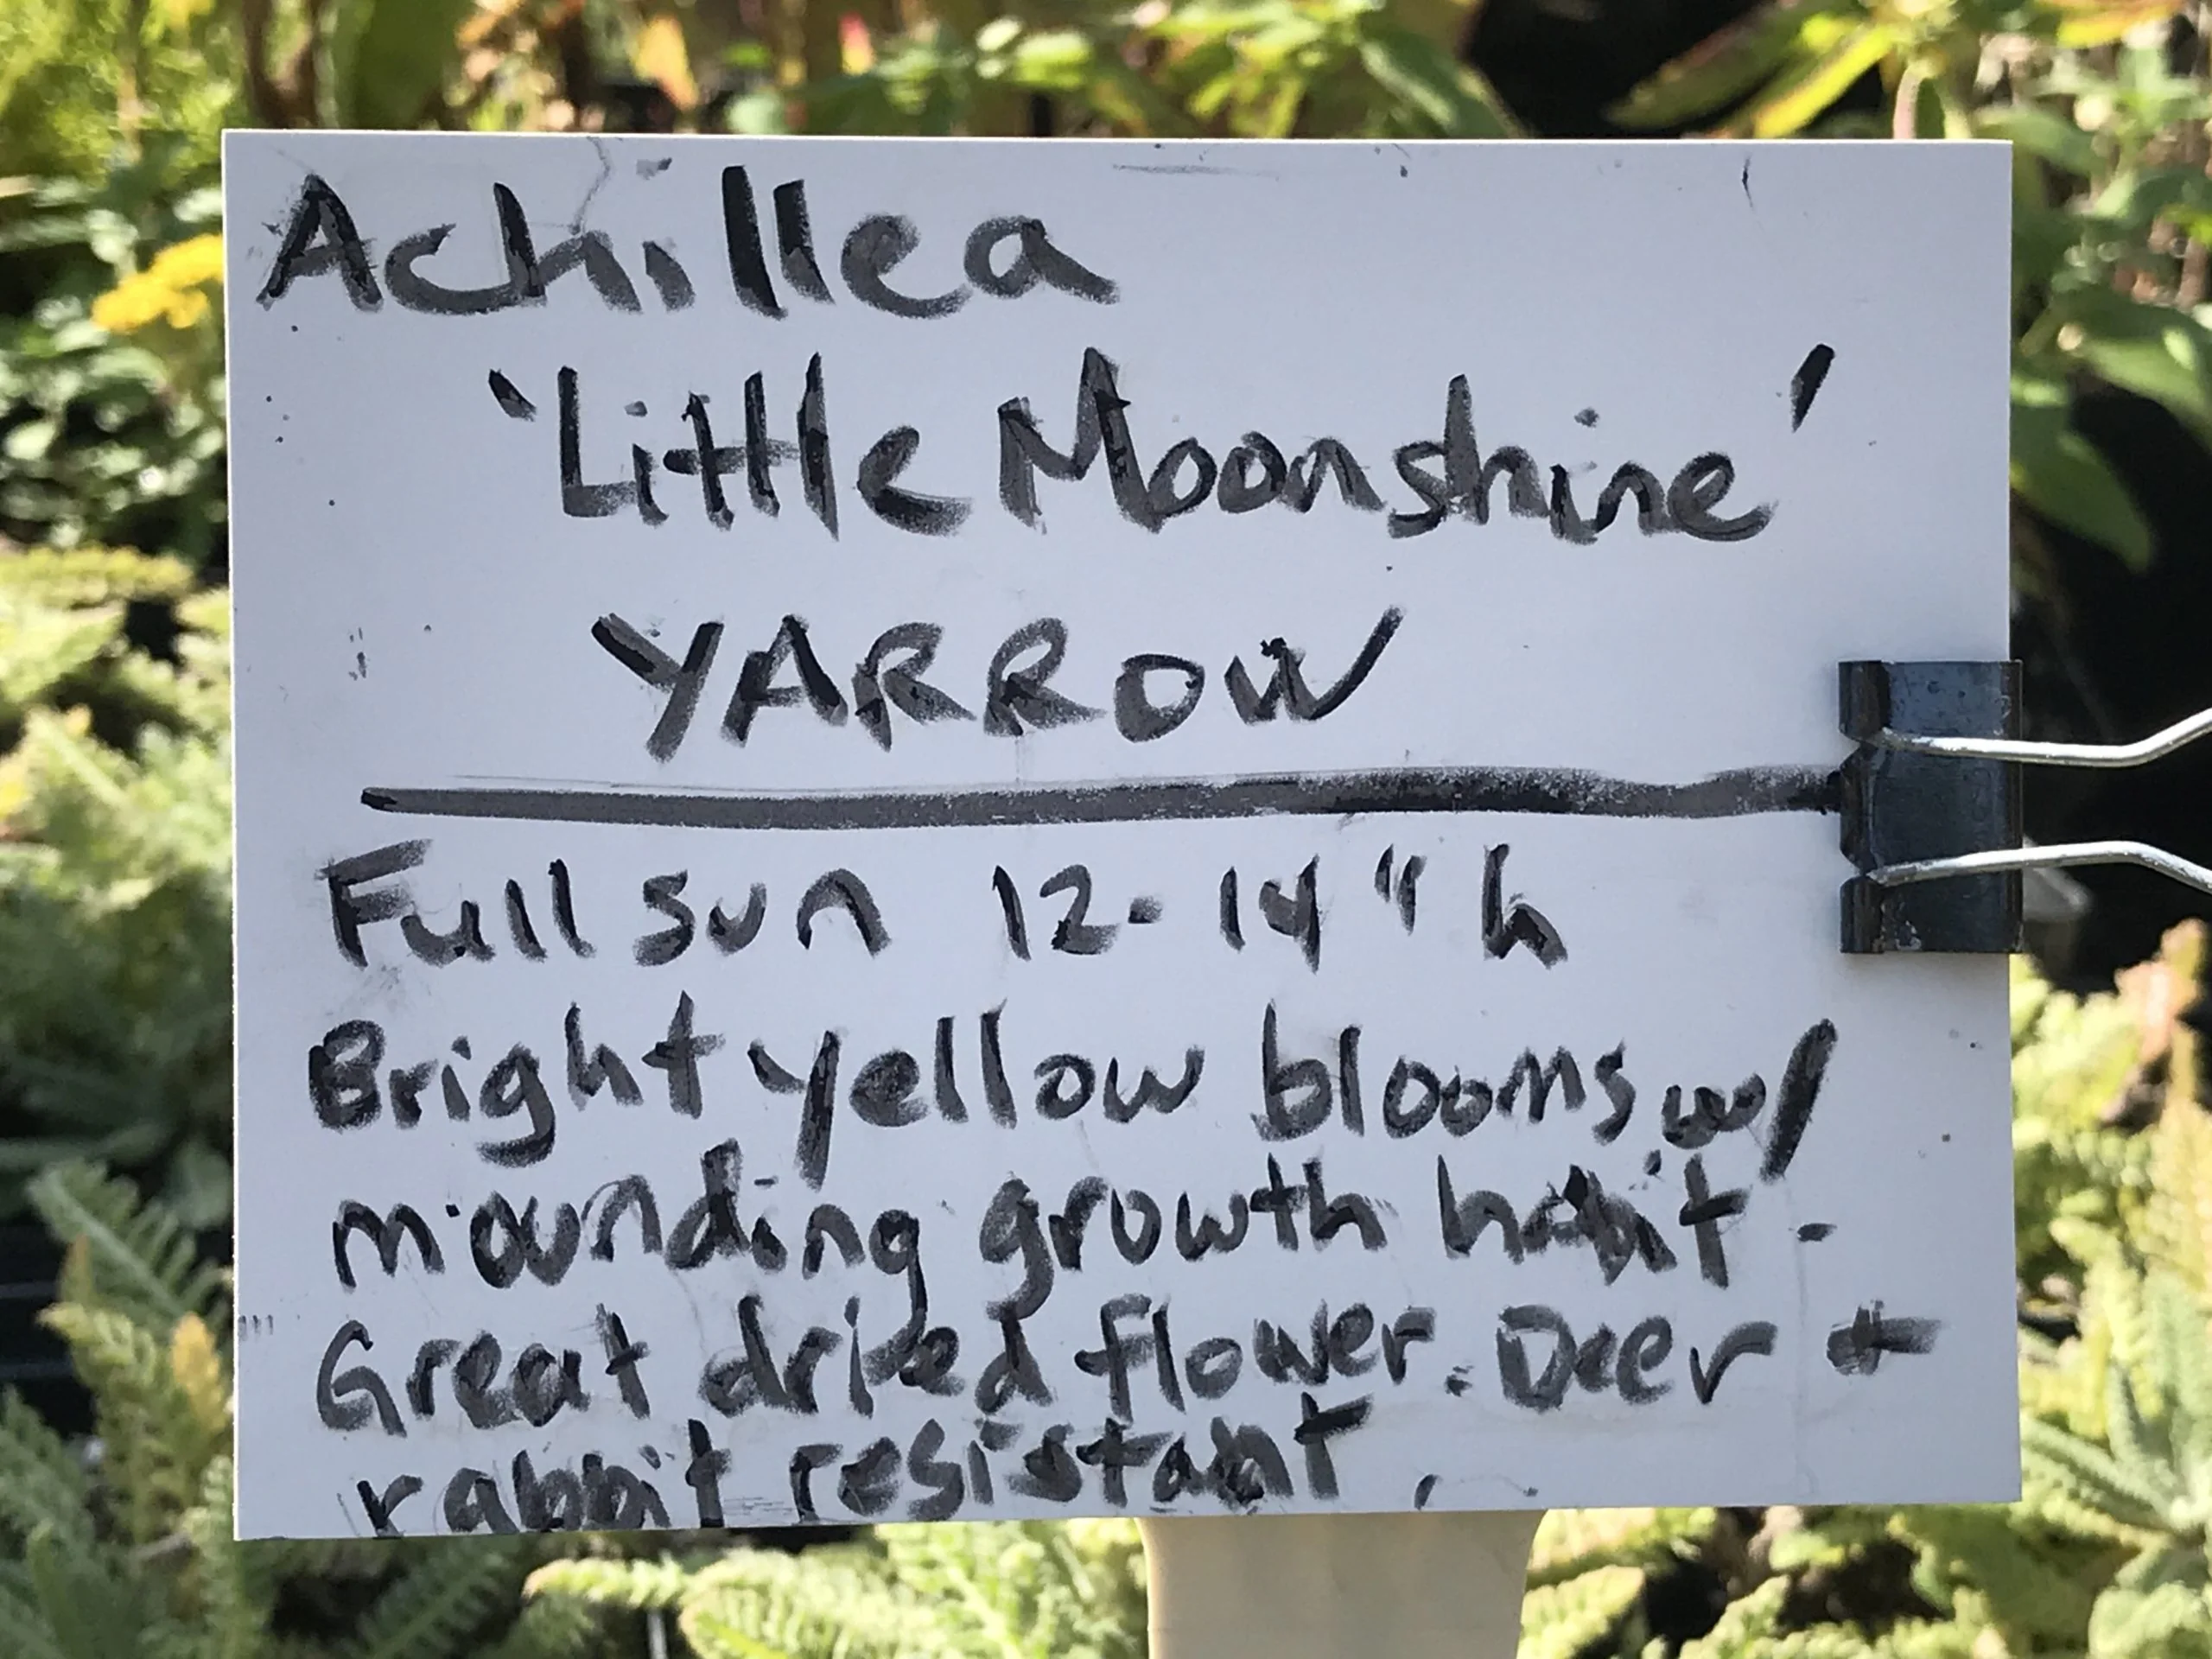 Achillea
'Little Moonshine'
YARROW
Full sun 12-14" h
Bright yellow blooms w/
mounding growth habit.
Great dried flower. Deer +
rabbit resistant.